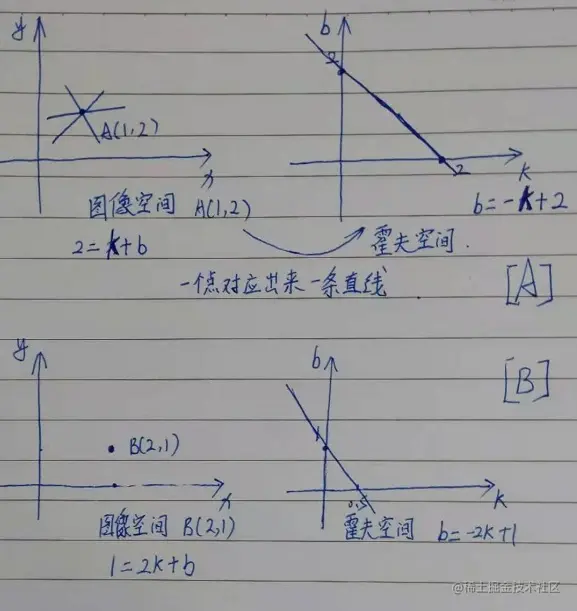 y
b
2
A(1,2)
x
2
k
图像空间 A(1,2)
b=-k+2
2=k+b
霍夫空间.
一个点对应出来一条直线
[A]
y
b
[B]
B(2,1)
1
x
0.5
k
图像空间 B(2,1)
霍夫空间 b=-2k+1
1=2k+b
@稀土掘金技术社区